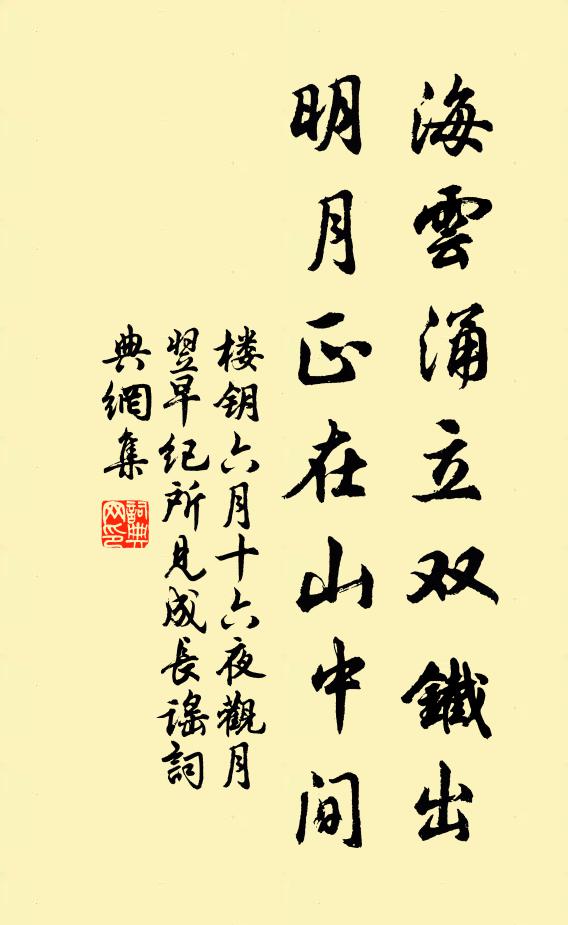 海雲涌立双鐵出
明月正在山中间
楼钥六月十六夜觀月
翌早纪所见成長謡詞
典網集
詞典网印